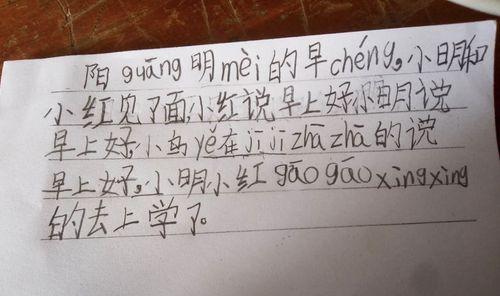 阳guāng明mèi的早chéng,小明和
小红见了面,小红说早上好,小明说
早上好,小鸟yě在jījīzhāzhā的说
早上好,小明小红gāogāoxìngxìng
的去上学了。